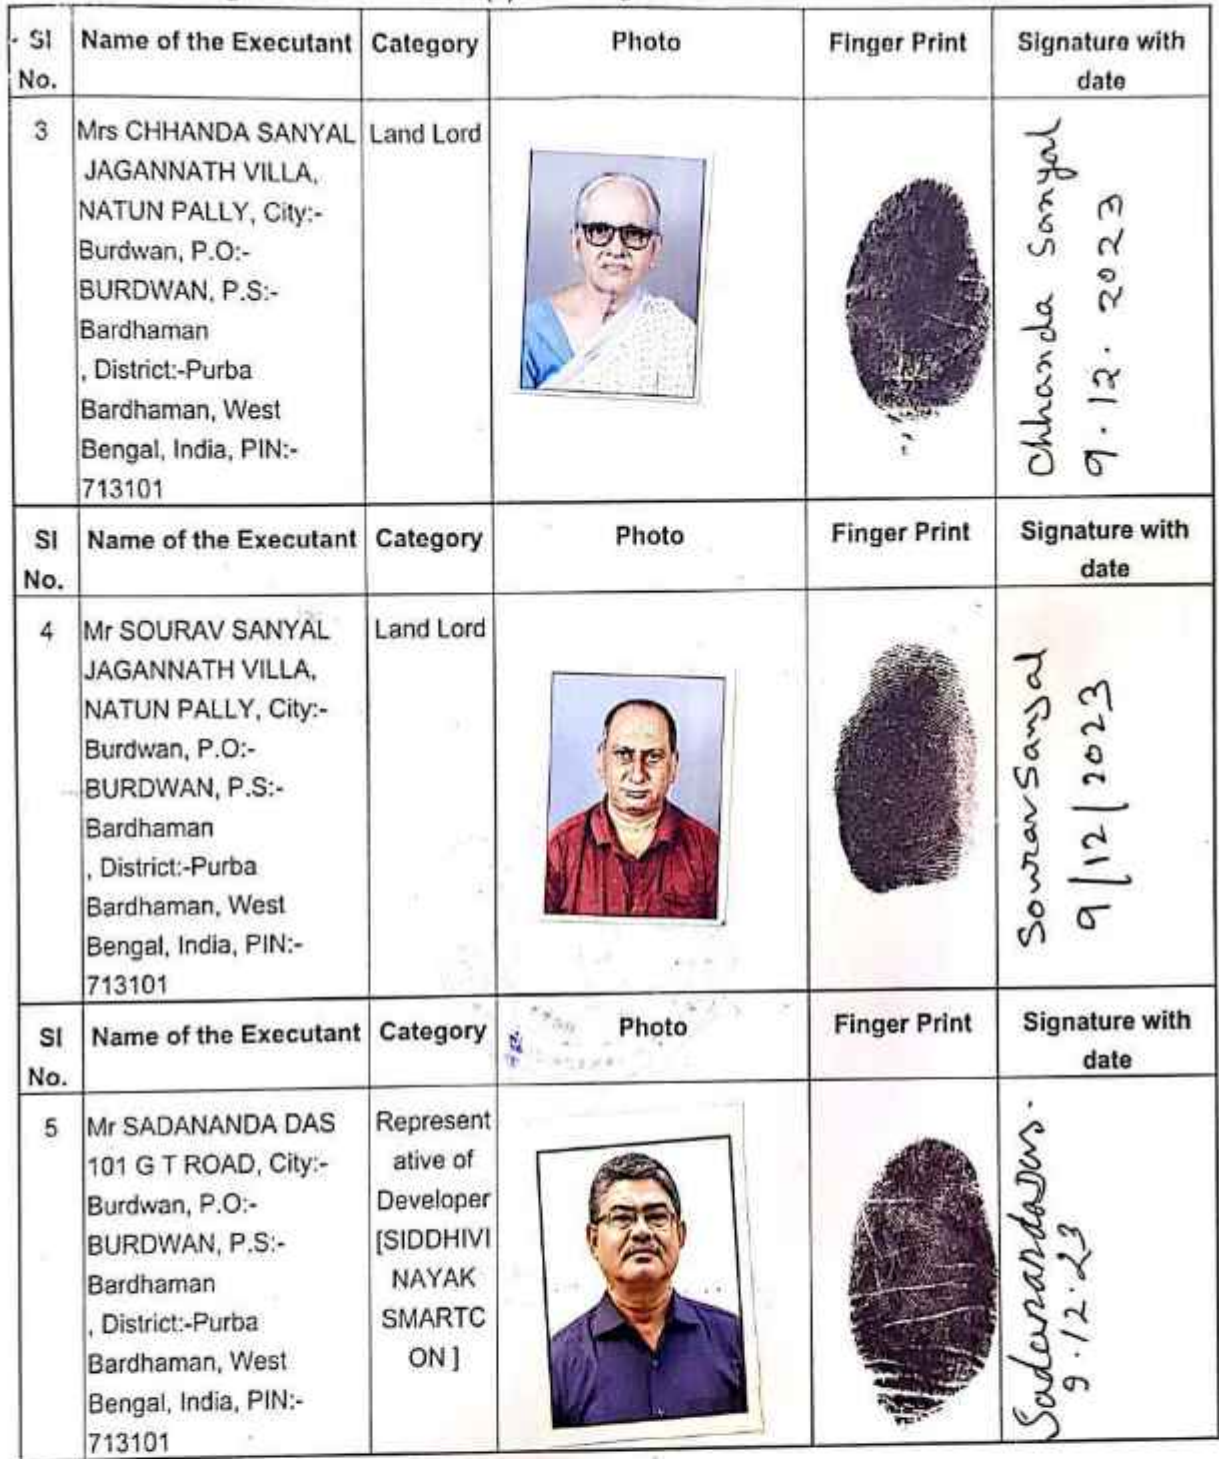 Sl No. Name of the Executant Category Photo Finger Print Signature with date
3 Mrs CHHANDA SANYAL Land Lord
JAGANNATH VILLA,
NATUN PALLY, City:-
Burdwan, P.O:-
BURDWAN, P.S:-
Bardhaman
, District:-Purba
Bardhaman, West
Bengal, India, PIN:-
713101
Chhanda Sanyal
9.12.2023
Sl No. Name of the Executant Category Photo Finger Print Signature with date
4 Mr SOURAV SANYAL Land Lord
JAGANNATH VILLA,
NATUN PALLY, City:-
Burdwan, P.O:-
BURDWAN, P.S:-
Bardhaman
, District:-Purba
Bardhaman, West
Bengal, India, PIN:-
713101
Sourav Sanyal
9/12/2023
Sl No. Name of the Executant Category Photo Finger Print Signature with date
5 Mr SADANANDA DAS
101 G T ROAD, City:-
Burdwan, P.O:-
BURDWAN, P.S:-
Bardhaman
, District:-Purba
Bardhaman, West
Bengal, India, PIN:-
713101
Represent
ative of
Developer
[SIDDHIVI
NAYAK
SMARTC
ON ]
Sadananda Das.
9.12.23